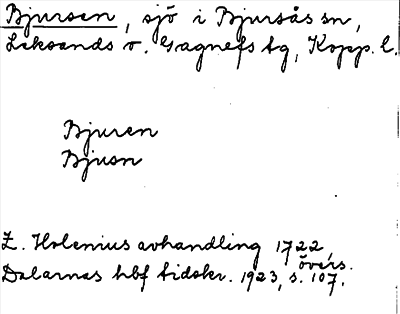 Bjursen, sjö i Bjursås sn,
Leksands o. Gagnefs tg, Kopp. l.
Bjuren
Bjusn
Z. Holenius avhandling 1722, övers.
Dalarnas hbf tidskr. 1923, s. 107.